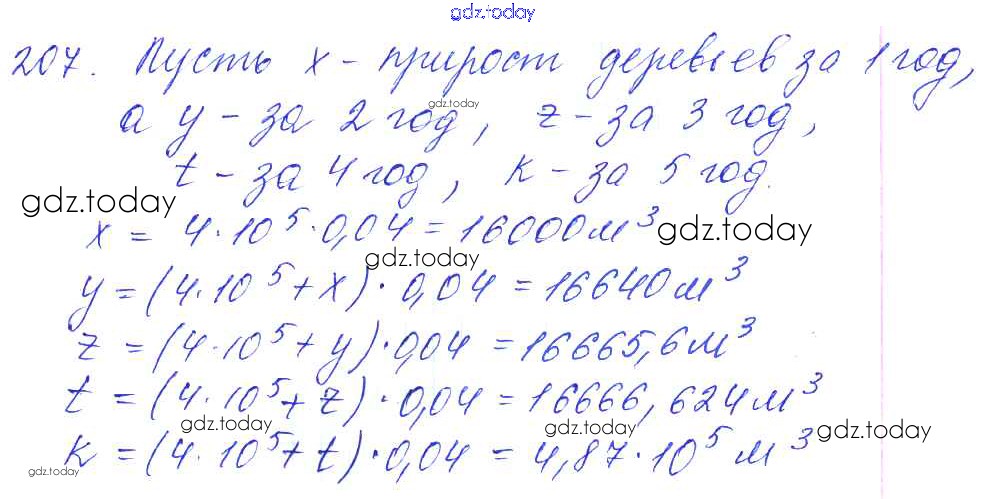 gdz.today
207. Пусть x - прирост деревьев за 1 год,
gdz.today
а y - за 2 год, z - за 3 год,
t - за 4 год, к - за 5 год.
gdz.today
x = 4·10⁵·0,04 = 16000м³
gdz.today
gdz.today
y = (4·10⁵ + x)·0,04 = 16640м³
z = (4·10⁵ + y)·0,04 = 16665,6м³
t = (4·10⁵ + z)·0,04 = 16666,624м³
gdz.today
gdz.today
gdz.today
к = (4·10⁵ + t)·0,04 = 4,87·10⁵ м³
gdz.today